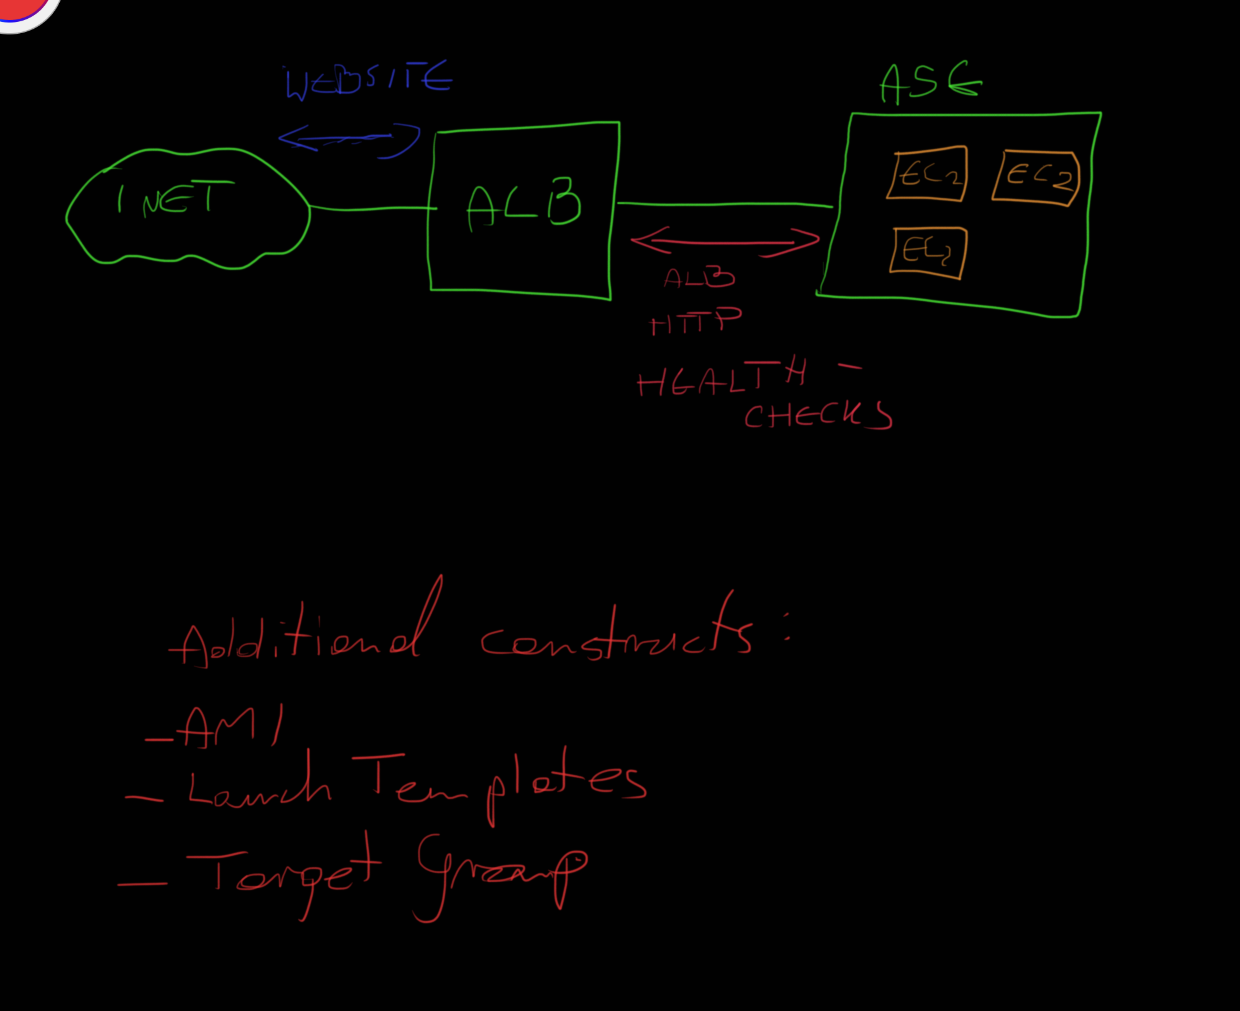 WEBSITE
ASG
INET
ALB
EC2
EC2
EC2
ALB
HTTP
HEALTH -
CHECKS
Additional constructs:
- AMI
- Launch Templates
- Target Group